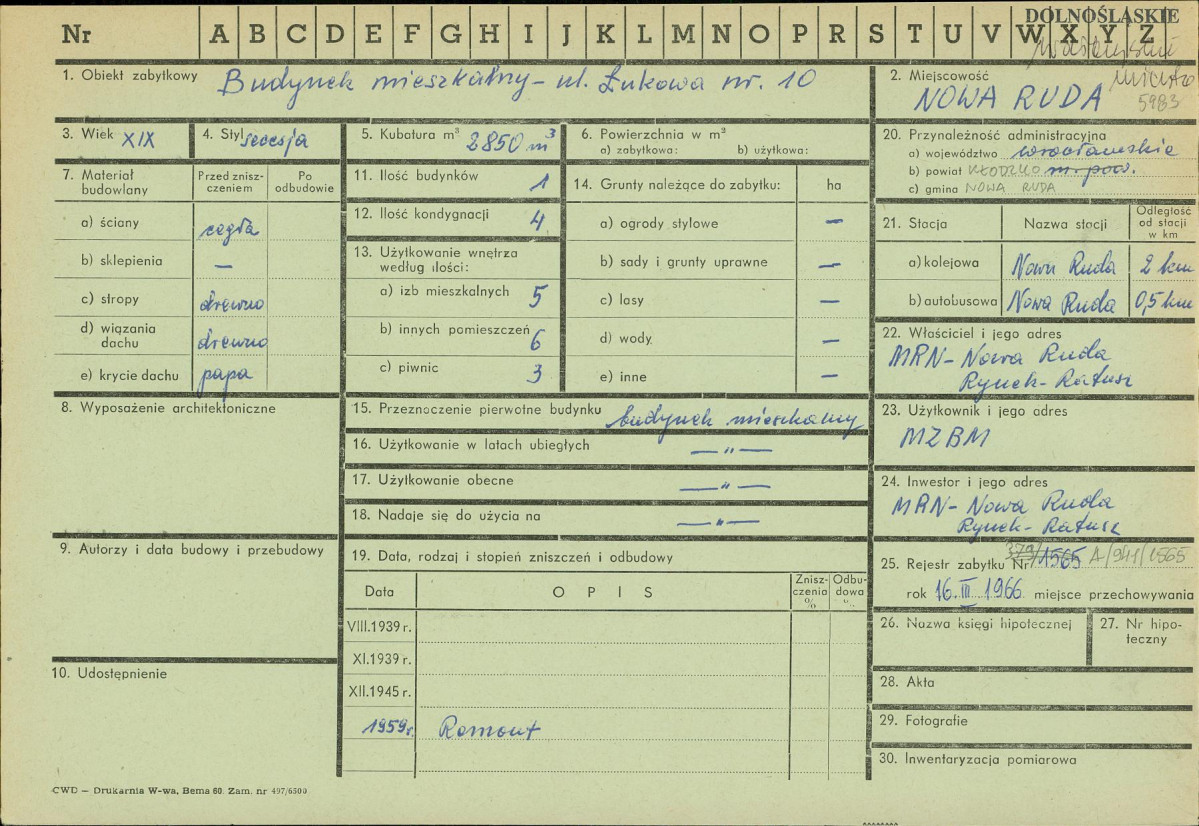 DOLNOŚLĄSKIE
Nr A B C D E F G H I J K L M N O P R S T U V W X Y Z
5983
1. Obiekt zabytkowy Budynek mieszkalny - ul. Łukowa nr. 10
2. Miejscowość
NOWA RUDA
3. Wiek XIX
4. Styl secesja
5. Kubatura m³ 2850 m³
6. Powierzchnia w m²
a) zabytkowa: b) użytkowa:
7. Materiał budowlany
Przed znisz-
czeniem
Po
odbudowie
a) ściany cegła
b) sklepienia —
c) stropy drewno
d) wiązania
dachu drewno
e) krycie dachu papa
8. Wyposażenie architektoniczne
9. Autorzy i data budowy i przebudowy
10. Udostępnienie
11. Ilość budynków 1
12. Ilość kondygnacji 4
13. Użytkowanie wnętrza
według ilości:
a) izb mieszkalnych 5
b) innych pomieszczeń 6
c) piwnic 3
14. Grunty należące do zabytku: ha
a) ogrody stylowe —
b) sady i grunty uprawne —
c) lasy —
d) wody —
e) inne —
15. Przeznoczenie pierwotne budynku budynek mieszkalny
16. Użytkowanie w latach ubiegłych —"—
17. Użytkowanie obecne —"—
18. Nadaje się do użycia na —"—
19. Data, rodzaj i stopień zniszczeń i odbudowy
Data OPIS
Znisz-
czenia
%
Odbu-
dowa
VIII.1939 r.
XI.1939 r.
XII.1945 r.
1959 r. Remont
20. Przynależność administracyjna
a) województwo wrocławskie
b) powiat KŁODZKO m. pow.
c) gmina NOWA RUDA
21. Stacja Nazwa stacji
Odległość
od stacji
w km
a) kolejowa Nowa Ruda 2 km
b) autobusowa Nowa Ruda 0,5 km
22. Właściciel i jego adres
MRN - Nowa Ruda
Rynek - Ratusz
23. Użytkownik i jego adres
MZBM
24. Inwestor i jego adres
MRN - Nowa Ruda
Rynek - Ratusz
25. Rejestr zabytku Nr 1565 A/941/1565
rok 16. III 1966 miejsce przechowywania
26. Nazwa księgi hipotecznej
27. Nr hipo-
teczny
28. Akta
29. Fotografie
30. Inwentaryzacja pomiarowa
CWD — Drukarnia W-wa, Bema 60. Zam. nr 497/6500